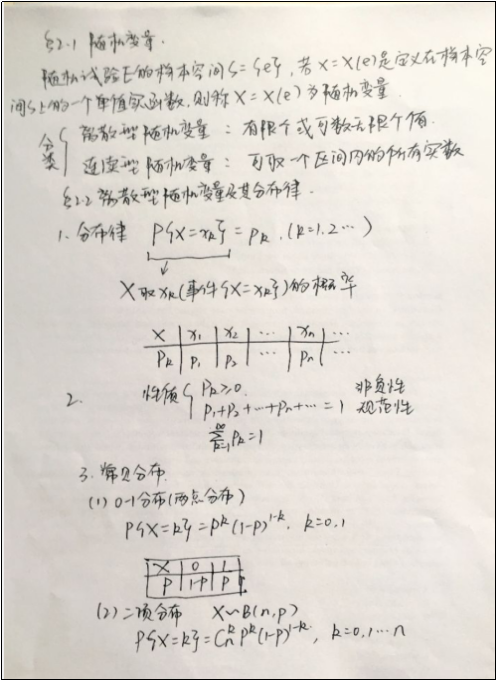 §2.1 随机变量.
随机试验E的样本空间S={e}, 若X=X(e)是定义在样本空
间S上的一个单值实函数, 则称X=X(e)为随机变量
分类 { 离散型随机变量: 有限个或可数无限个值.
连续型随机变量: 可取一个区间内的所有实数
§2.2 离散型随机变量及其分布律.
1. 分布律 P{X=xk}=Pk. (k=1.2…)
X取xk(事件{X=xk})的概率
X | x1 | x2 | … | xn | …
Pk | P1 | P2 | … | Pn | …
2. 性质 { Pk≥0. 非负性
P1+P2+…+Pn+…=1 规范性
∑_{k=1}^{∞} Pk=1
3. 常见分布
(1) 0-1分布(两点分布)
P{X=k}=P^k (1-P)^{1-k}. k=0,1
X | 0 | 1
P | 1-P | P
(2) 二项分布 X~B(n,p)
P{X=k}=C_n^k P^k (1-P)^{1-k}, k=0,1…n